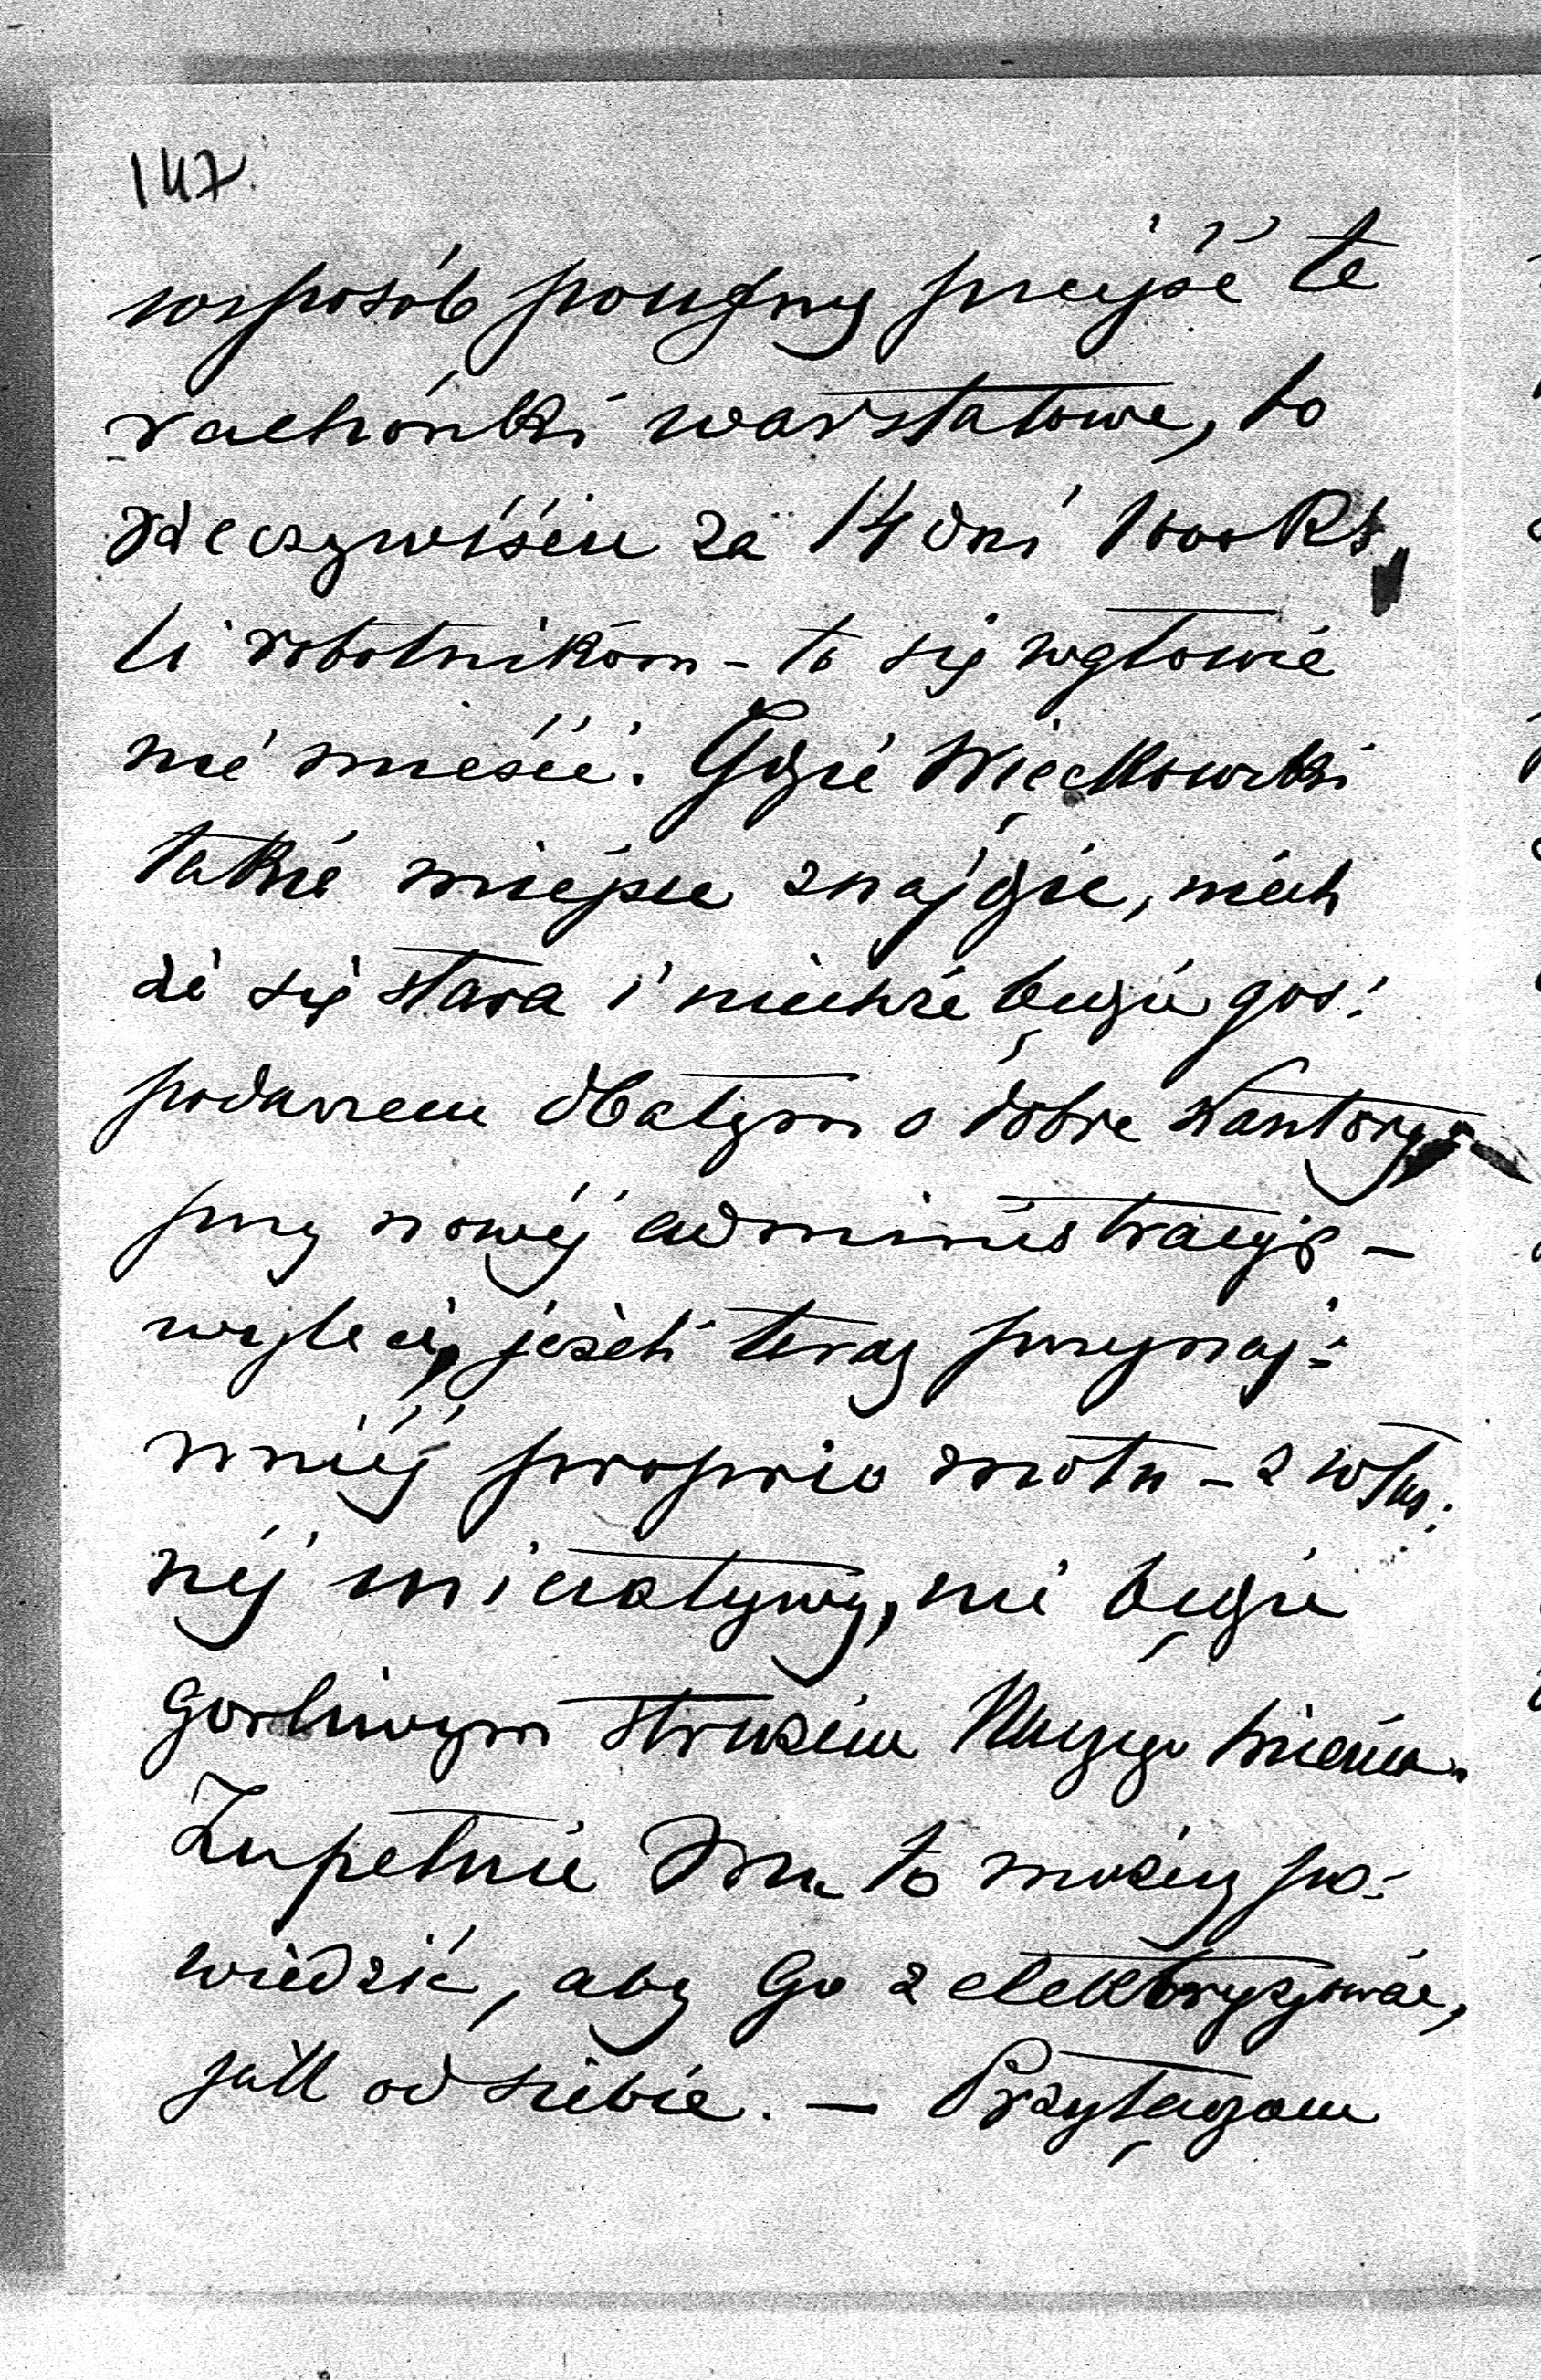 147.
wsposób poufny przejść te
rachónki warstatowe, to
rzeczywiście za 14 dni 1000 Rs.
ti robotnikom - to się wgłowie
nie mieści. Gdzie Więckowski
takie miejsce znajdzie, niech
że się stara i niechże będzie gos:
podarzem dbałym o dobre Kantoru,
przy nowéj administracyi –
wyleci, jeżeli teraz przynaj:
mniéj proprio motu - z włas:
néj iniciatywy, nie będzie
gorliwym stróżem Naszego mienia.
Zupełnie Mu to możesz po:
wiedzić, aby Go zelektryzować,
jak od siebie. — Przyłączam